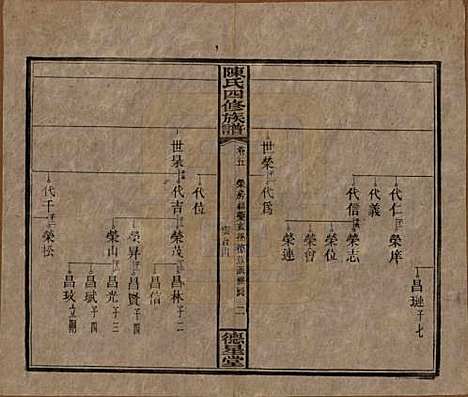 代仁
榮庠
昌璉 子七
代義
代信
榮志
榮位
榮會
榮連
世榮
代為
陳氏四修族譜
卷五
德星堂
代位
世杲
代吉
榮茂
昌林 子二
昌信
榮昇
昌賢 子四
榮山
昌光 子三
昌斌 子四
昌玫 立嗣
代千
榮松